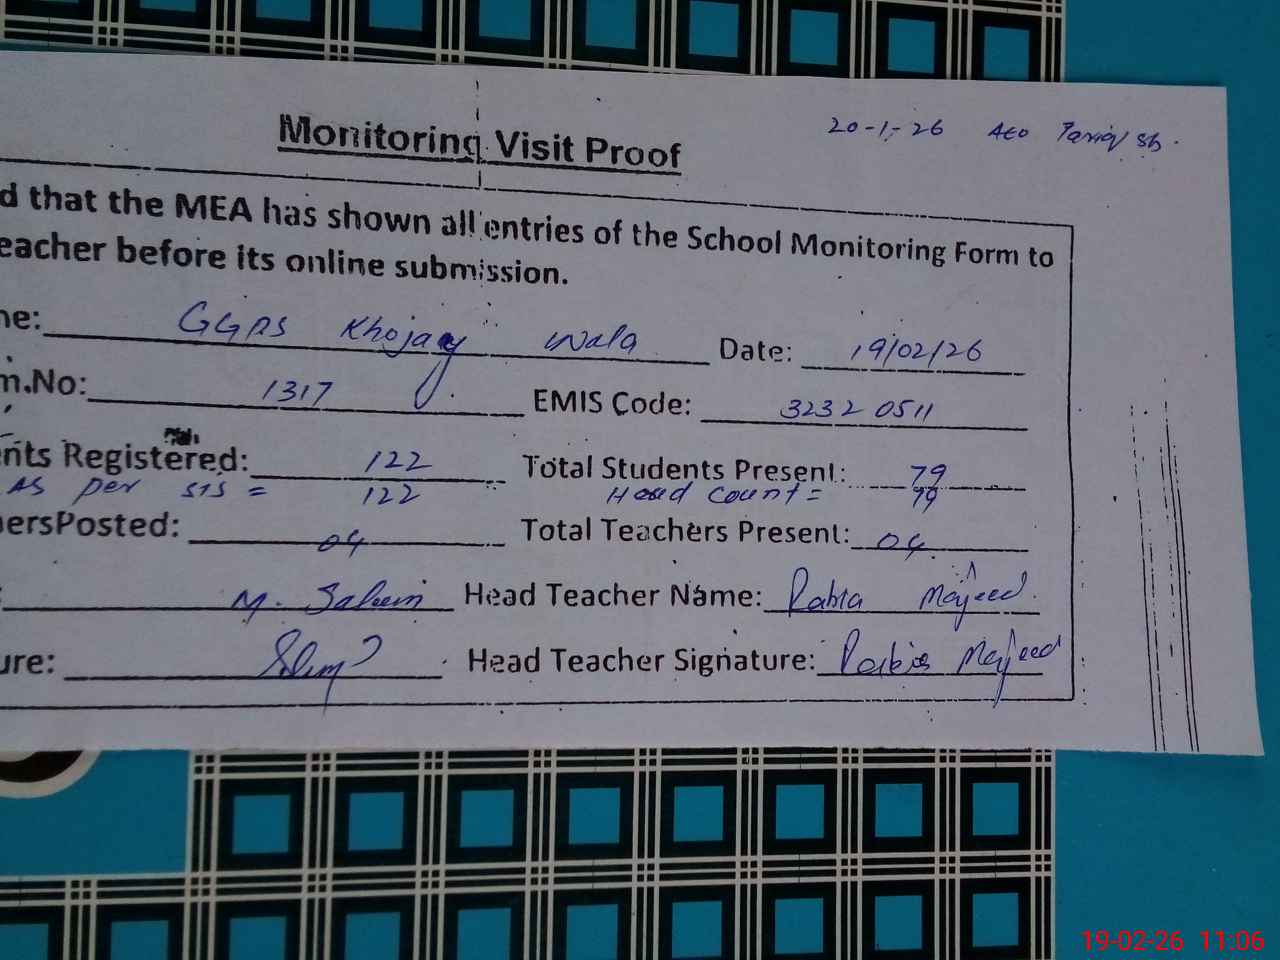 Monitoring Visit Proof
20-1-26 AEO Tariq sb.
d that the MEA has shown all entries of the School Monitoring Form to
eacher before its online submission.
ne: GGPS Khojay Wala Date: 19/02/26
m.No: 1317 EMIS Code: 3232 0511
nts Registered: 122 Total Students Present: 79
As per SIS = 122 Head Count = 79
ersPosted: 04 Total Teachers Present: 04
M. Saleem Head Teacher Name: Rabia Majeed
ure: Head Teacher Signature: Rabia Majeed
19-02-26 11:06